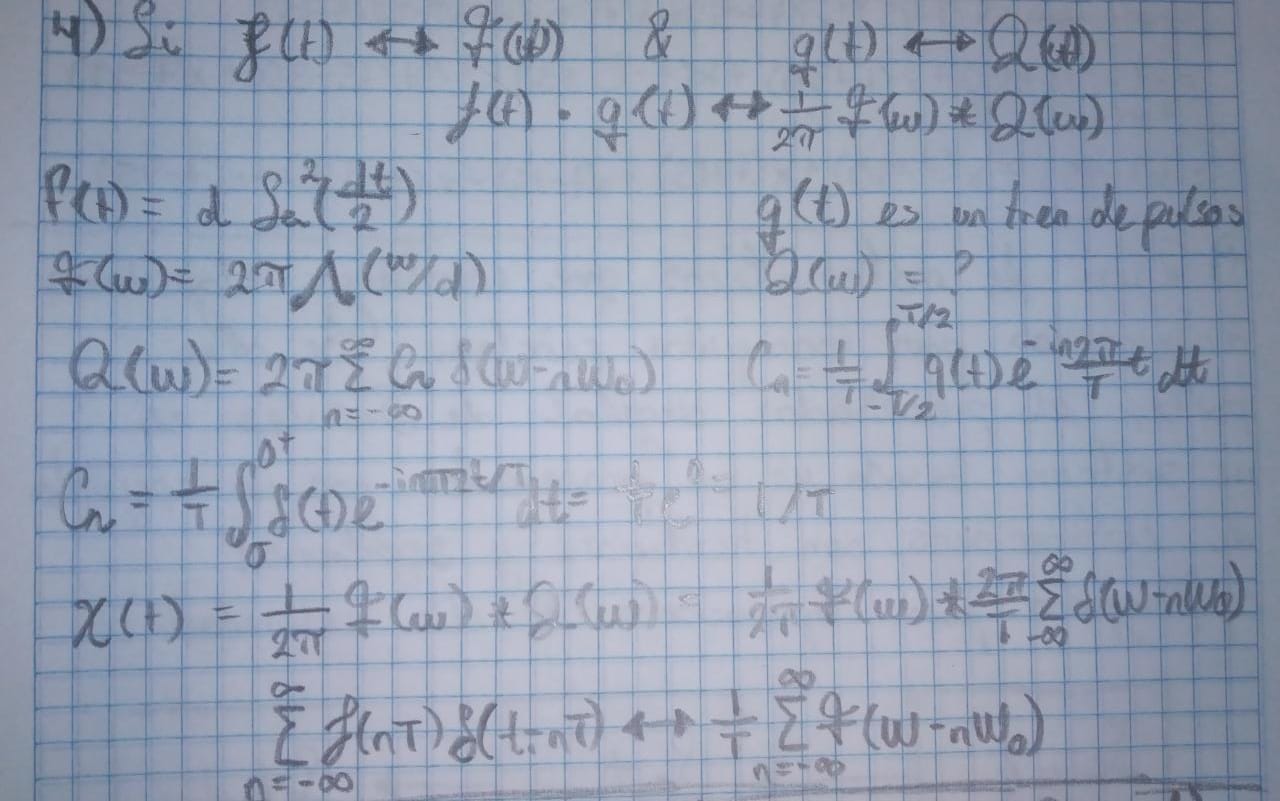 4) Si f(t) ↔ F(w) & g(t) ↔ Q(w)
f(t) · g(t) ↔ 1/2π F(w) * Q(w)
f(t) = d Sa²(dt/2) g(t) es un tren de pulsos
F(w) = 2π Λ(w/d) Q(w) = ?
Q(w) = 2π ∑_{n=-∞}^{∞} Cn δ(w-nw₀) Cn = 1/T ∫_{-T/2}^{T/2} g(t) e^{-in2π/T t} dt
Cn = 1/T ∫_{0⁻}^{0⁺} δ(t) e^{-inπ2t/T} dt = 1/T e⁰ = 1/T
X(t) = 1/2π F(w) * Q(w) = 1/2π F(w) * 2π/T ∑_{-∞}^{∞} δ(w-nw₀)
∑_{n=-∞}^{∞} f(nT) δ(t-nT) ↔ 1/T ∑_{n=-∞}^{∞} F(w-nw₀)